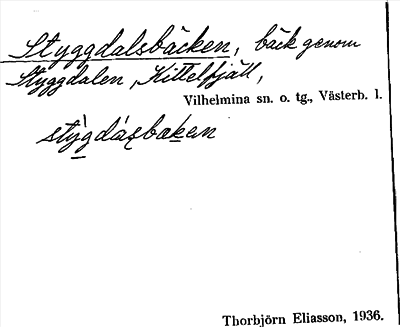 Styggdalsbäcken, bäck genom
Styggdalen, Kittelfjäll,
Vilhelmina sn. o. tg., Västerb. l.
stỳgdáʂbaken
Thorbjörn Eliasson, 1936.